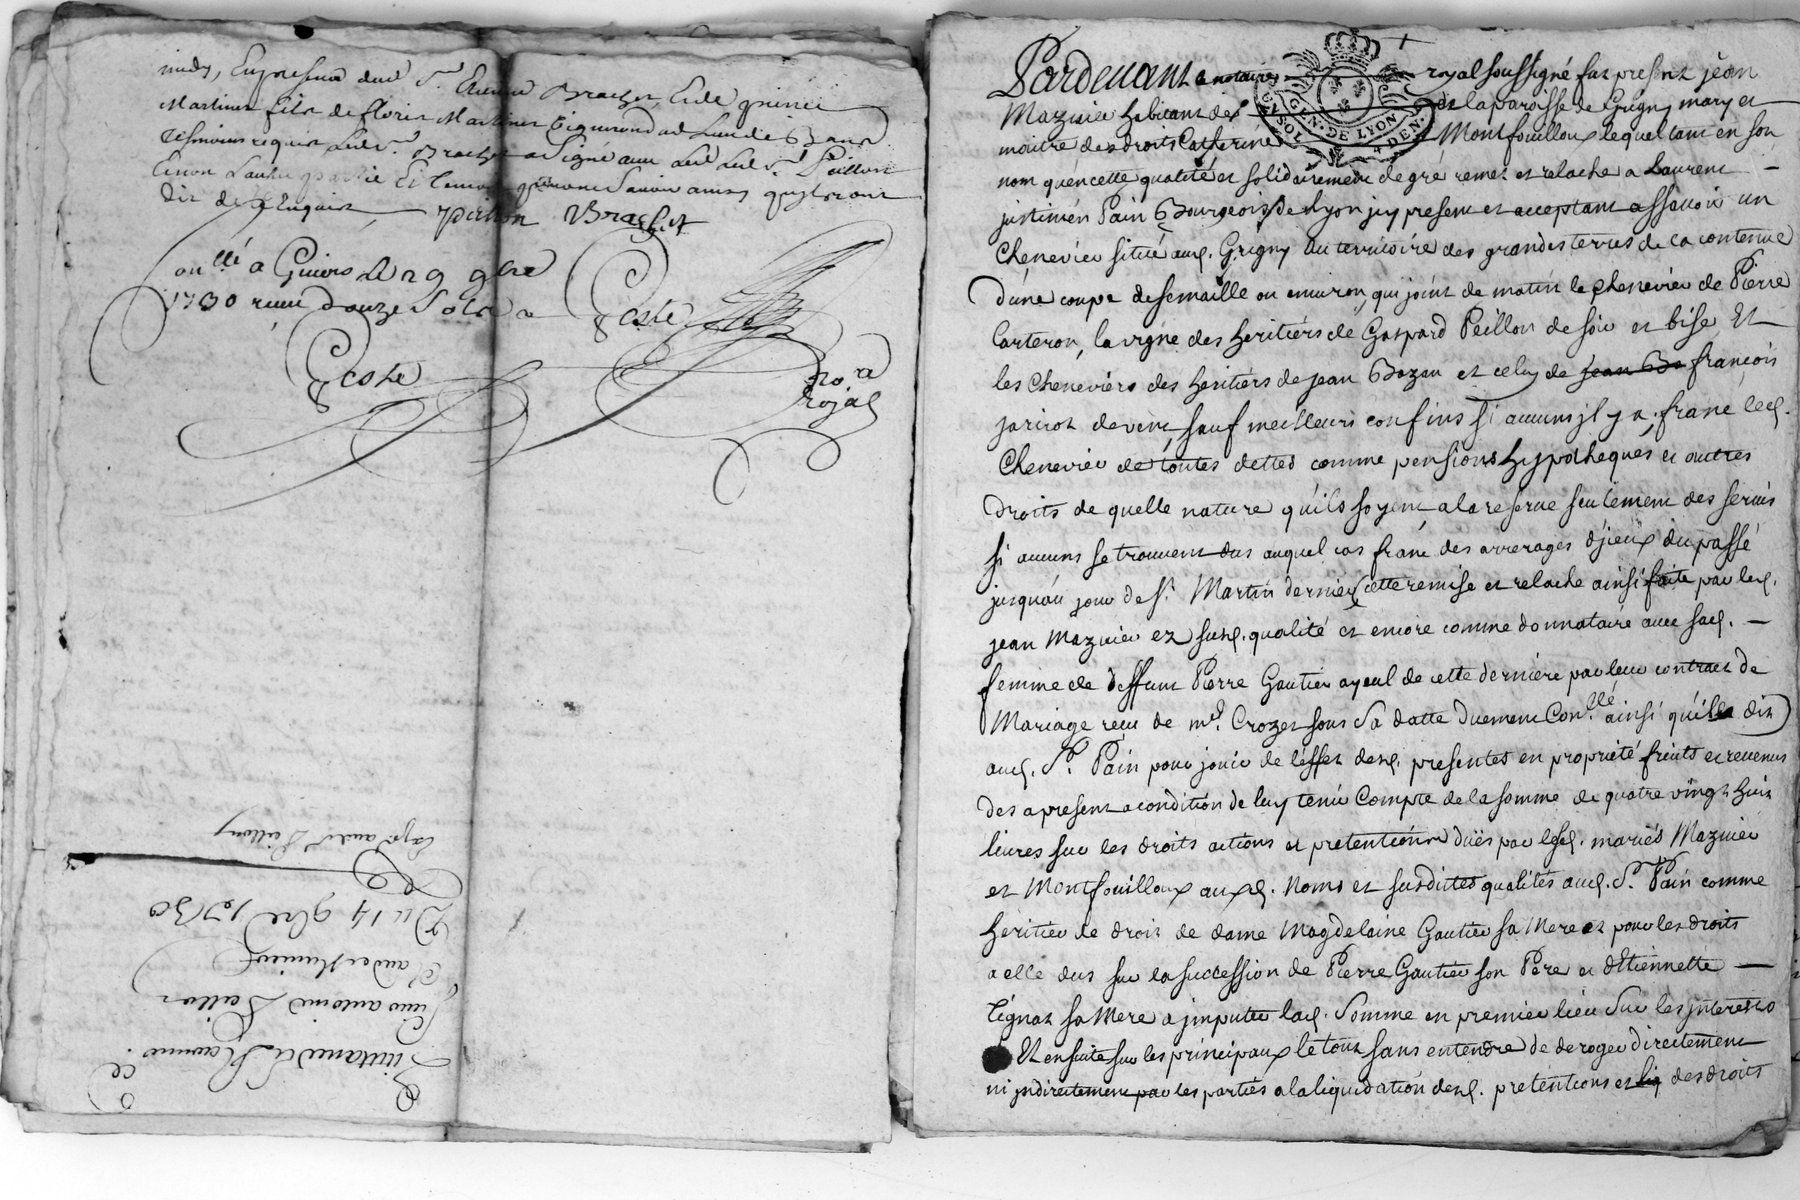 midy, En presence dud. Sr. Etienne Brachet, Et de
Martinet fils de fleury Martinet vigneron dud. lieu de
tesmoins requis Led. Sr. Brachet a signé avec Led. Sr. Peillon
Et non L'autre partie Et temoin pour ne Savoir ainsy qu'ils ont
dit de ce Enquis
peillon Brachet
conllé a Givors le 29 9bre
1730 receu douze Sols
Coste
Coste
no.re
royal
Expé aud. Sr. Peillon
Du 14 9bre 1730
Claude
antoine Peillon
Quittance
Pardevant le notaire royal soussigné fut present jean
Mazuier habitant de la paroisse de Grigny mary et
maitre des droits Catherine Montfouilloux lequel tant en son
nom qu'en cette qualité et solidairement de gré remet et relache a Laurent
justinien Pain Bourgeois de Lyon jcy present et acceptant assavoir un
Chenevier situé aud. Grigny au territoire des grandes terres de la contenue
d'une coupe de semaille ou environ, qui joint de matin le chenevier de Pierre
Carteron, la vigne des heritiers de Gaspard Peillon de soir et bise, Et
les Cheneviers des heritiers de jean Bazan et celuy de jean Ba françois
jaricot de vent, sauf meilleurs confins si aucuns jl y a, franc led.
Chenevier de toutes dettes comme pensions hypotheques et autres
droits de quelle nature qu'ils soyent a la reserve seulement des servis
si aucuns se trouvent dus auquel cas franc des arrerages d'jceux du passé
jusqu'au jour de St. Martin dernier, cette remise et relache ainsi faite par led.
jean Mazuier ez susd. qualité et encore comme donnataire avec sad.
femme de deffunt Pierre Gautier ayeul de cette derniere par leur contract de
Mariage receu de me. Crozet sous sa datte duement Con.llé ainsi qu'il dit
aud. Sr. Pain pour jouir de l'effet desd. presentes en proprieté fruits et revenus
des a present a condition de luy tenir Compte de la somme de quatre vingt huit
livres sur les droits actions et pretentions dües par lesd. mariés Mazuier
et Montfouilloux auxd. noms et susdittes qualités aud. Sr. Pain comme
heritier de droit de dame Magdelaine Gautier sa Mere et pour les droits
a elle dus sur la succession de Pierre Gautier son Pere et d'Etiennette
Tignat sa Mere a jmputer lad. Somme en premier lieu sur les jnterests
Et ensuite sur les principaux le tout sans entendre de deroger directement
ni jndirectement par les parties a la liquidation desd. pretentions et des droits